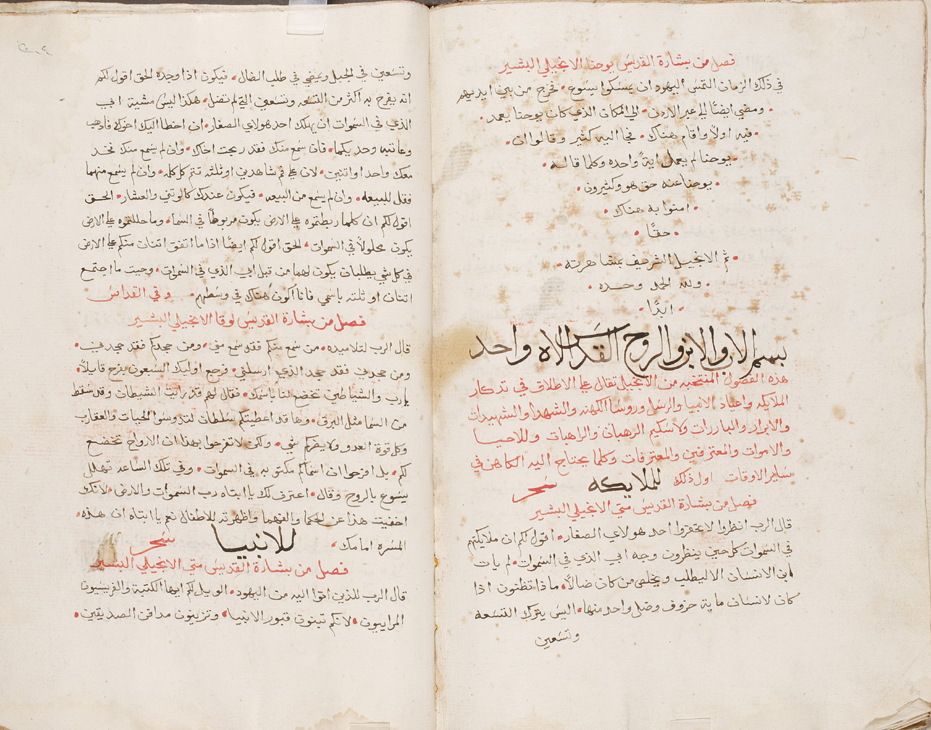 فصل من بشارة القديس يوحنا الانجيلي البشير
في ذلك الزمان التمس اليهود ان يمسكوا يسوع • فخرج من بين ايديهم
• ومضى ايضًا الي عبر الاردن • الي المكان الذي كان يوحنا يعمد •
• فيه اولاً واقام هناك • فجا اليه كثير وقالوا ان •
• يوحنا لم يعمل ايةً واحده وكلما قاله •
• يوحنا عنه حق هو وكثيرون •
• امنوا به هناك •
• حقًا •
• تم الانجيل الشريف بمشاهرته •
• ولله الحمد وحده •
• ابدًا •
بسم الاب والابن والروح القدس الالاه واحد
هذه الفصول المنتخبه من الانجيل تقال علي الاطلاق في تدكار
الملايكه واعياد الانبيا والرسل وروسا الكهنه والشهدا والشهيدات
والابرار والبارات ولاسكيم الرهبان والراهبات وللاحيا
والاموات والمعترفين والمعترفات وكلما يحتاج اليه الكاهن في
ساير الاوقات اول ذلك للملايكه سَحَر
فصل من بشارة القديس متي الانجيلي البشير
قال الرب انظروا لا تحقروا احد هولاي الصغار • اقول لكم ان ملايكتهم
في السموات كل حين ينظرون وجه ابي الذي في السموات • لم يات
ابن الانسان الا ليطلب ويخلص من كان ضالاً • ماذا تظنون اذا
كان لانسان ماية خروف وضل واحد منها • اليس يترك التسعه
وتسعين
وتسعين في الجبل ويمضي في طلب الضال • فيكون اذا وجده الحق اقول لكم
انه يفرح به اكثر من التسعه وتسعين التي لم تضل • هكذا ليس مشية ابي
الذي في السموات ان يهلك احد هولاي الصغار • ان اخطا اليك اخوك فاذهب
وعاتبه وحديكما • فان سمع منك فقد ربحت اخاك • وان لم يسمع منك فخد
معك واحد او اتنين • لان علي فم شاهدين او ثلثه تتم كل كلمه • وان لم يسمع منهما
فقل للبيعه • وان لم يسمع من البيعه • فيكون عندك كالوتني والعشار • الحق
اقول لكم ان كلما ربطتموه علي الارض يكون مربوطًا في السما • وما حللتموه علي الارض
يكون محلولاً في السموات • الحق اقول لكم ايضًا اذا ما اتفق اتنان منكم علي الارض
في كل شي يطلبان يكون لهما من قبل ابي الذي في السموات • وحيت ما اجتمع
اتنان او ثلثه باسمي فانا اكون هناك في وسطهم • وفي القداس
فصل من بشارة القديس لوقا الانجيلي البشير
قال الرب لتلاميذه • من سمع منكم فقد سمع مني • ومن جحدكم فقد جحدني •
ومن جحدني فقد جحد الذي ارسلني • فرجع اوليك السبعون بفرح قايلاً •
يارب والشياطين تخضع لنا باسمك • فقال لهم قد رايت الشيطان وقد سقط
من السما مثل البرق • وها قد اعطيتكم سلطان لتدوسوا الحيات والعقارب
وكل قوة العدو ولا يضركم شي • ولكن لا تفرحوا بهذا ان الارواح تخضع
لكم • بل افرحوا ان اسماكم مكتوبه في السموات • وفي تلك الساعه تهلل
يسوع بالروح وقال • اعترف لك يا ابتاه رب السموات والارض • لانك
اخفيت هذا عن الحكما والفهما واظهرته للاطفال نعم يا ابتاه ان هذه
المسره امامك • للانبيا سَحَر
فصل من بشارة القديس متي الانجيلي البشير
قال الرب للذين اتوا اليه من اليهود • الويل لكم ايها الكتبة والفريسيون
المراييون • لانكم تبنون قبور الانبيا • وتزينون مدافن الصديقين •